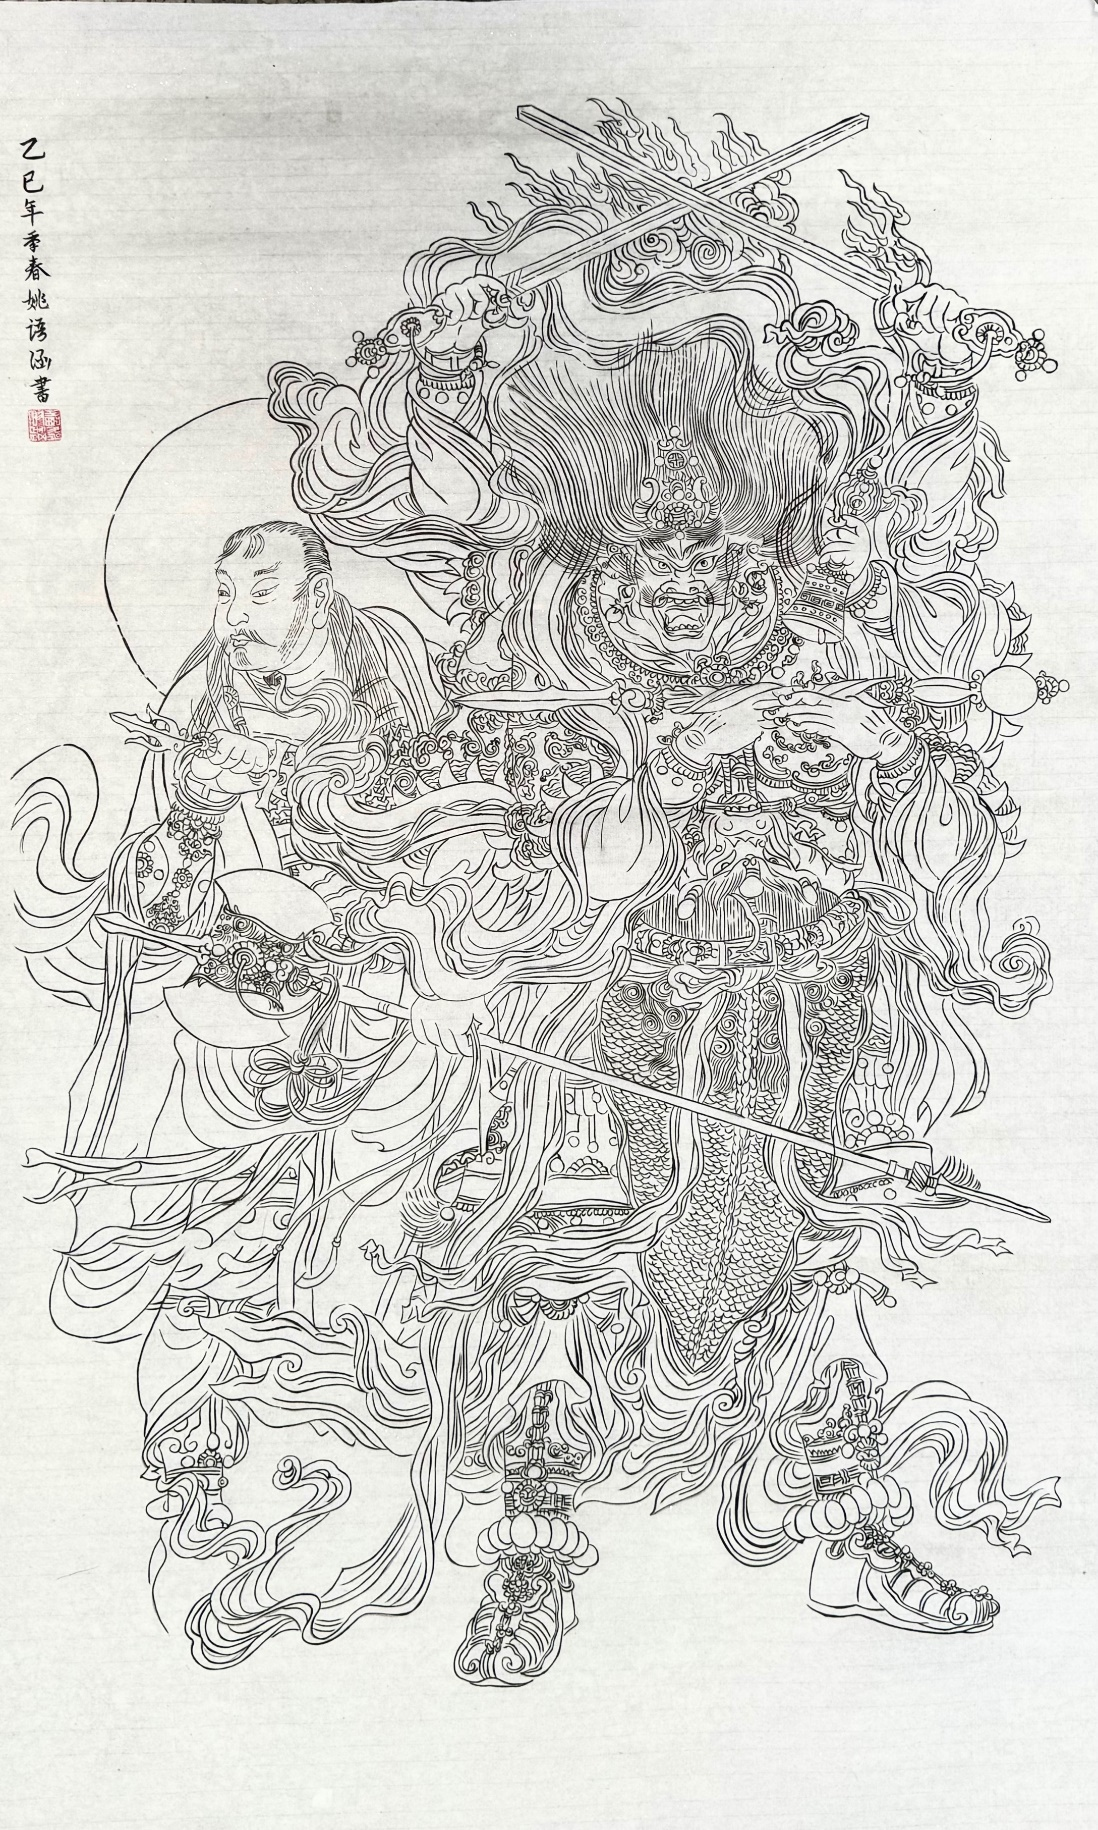 乙巳年季春姚语涵書